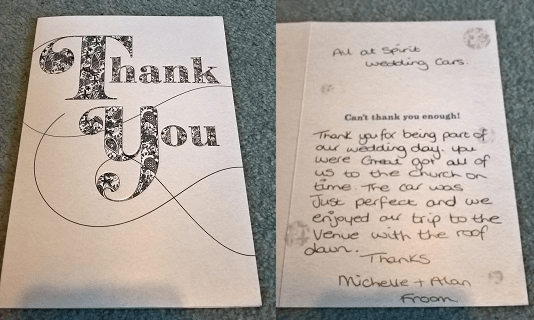 Thank
You
All at Spirit
Wedding Cars.
Can't thank you enough!
Thank you for being part of
our wedding day. you
were Great got all of
us to the church on
time. The car was
Just perfect and we
enjoyed our trip to the
Venue with the roof
down.
Thanks
Michelle + Alan
Froom.